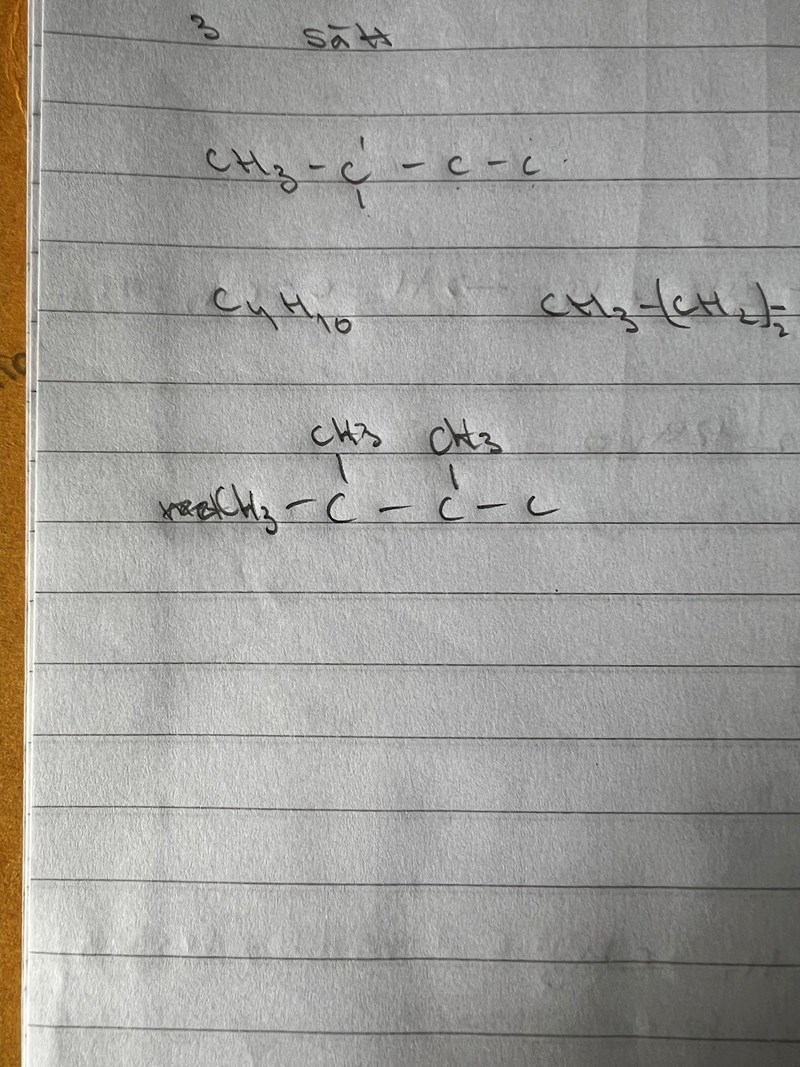 3 sätt
CH3 - C - C - C
C4H10 CH3-(CH2)2-
CH3 CH3
CH3 - C - C - C